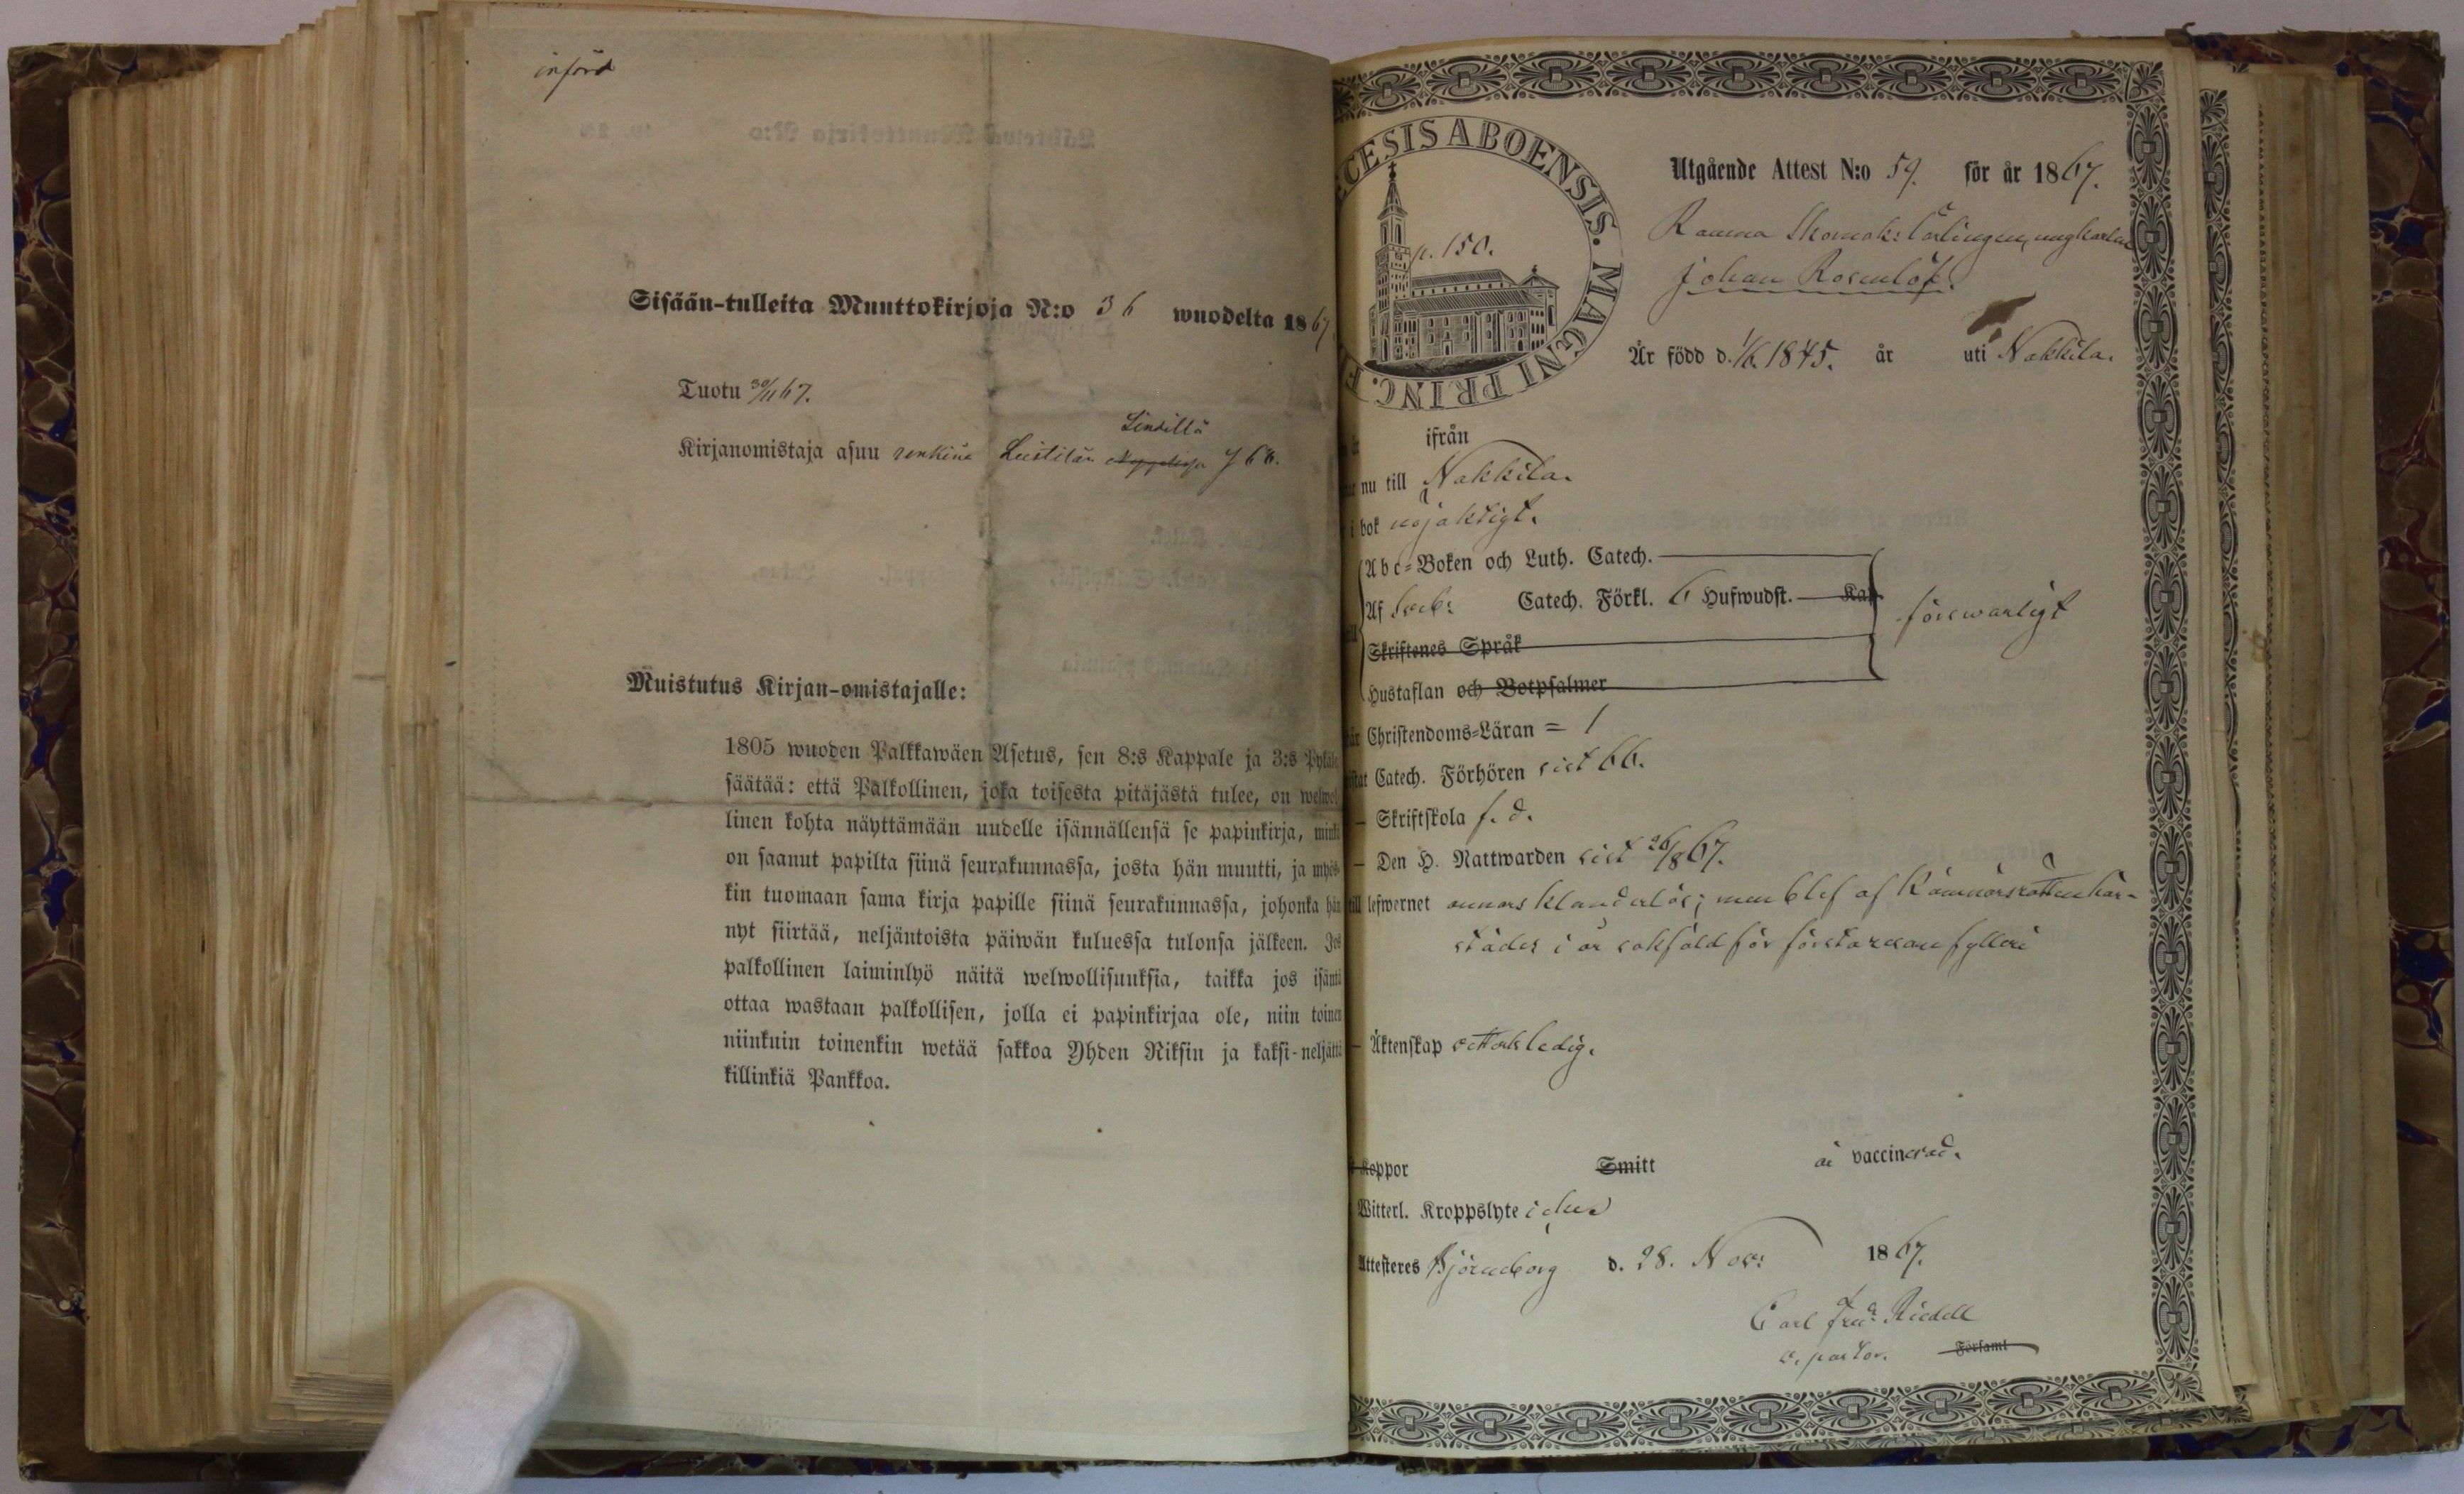 införd
Sisään-tulleita Muuttokirjoja N:o 36 wuodelta 1867
Tuotu 30/11 67.
Lindillä
Kirjanomistaja asuu renkinä Leistilän 768.
Muistutus Kirjan-omistajalle:
1805 wuoden Palkkawäen Asetus, sen 8:s Kappale ja 3:s Pykälä
säätää: että Palkollinen, joka toisesta pitäjästä tulee, on welwol
linen kohta näyttämään uudelle isännällensä se papinkirja, minkä
on saanut papilta siinä seurakunnassa, josta hän muutti, ja myös
kin tuomaan sama kirja papille siinä seurakunnassa, johonka hän
nyt siirtää, neljäntoista päiwän kuluessa tulonsa jälkeen. Jos
palkollinen laiminlyö näitä welwollisuuksia, taikka jos isäntä
ottaa wastaan palkollisen, jolla ei papinkirjaa ole, niin toinen
niinkuin toinenkin wetää sakkoa Yhden Riksin ja kaksi-neljättä
killinkiä Pankkoa.
CESIS ABOENSIS. MAGNI PRINC. F
p. 150.
Utgående Attest N:o 59. för år 1867.
Ramma Skomak: Lärlingen, ungkarlen
Johan Rosenlöf.
Är född d. 1/6. 1845. år uti Nakkila.
ifrån
nu till Nakkila.
i bok nöjaktigt.
Abc-Boken och Luth. Catech.
Af Sveb: Catech. Förkl. 6 Hufwudst. Kap
försvarligt
Skriftenes Språk
Hustaflan och Botpsalmer
Christendoms-Läran = 1
Catech. Förhören sist 66.
— Skriftskola f. d.
— Den H. Nattwarden sist 26/8 67.
till lefwernet annars klanderlös; men blef af Kämnärsrätten här-
städes i år sakfäld för första resan fylleri
— Äktenskap ledig.
Koppor Smitt är vaccinerad.
Witterl. Kroppslyte
Attesteres Björneborg d. 28. Nov: 1867.
Carl Fred. Riedell
v. pastor. Församl